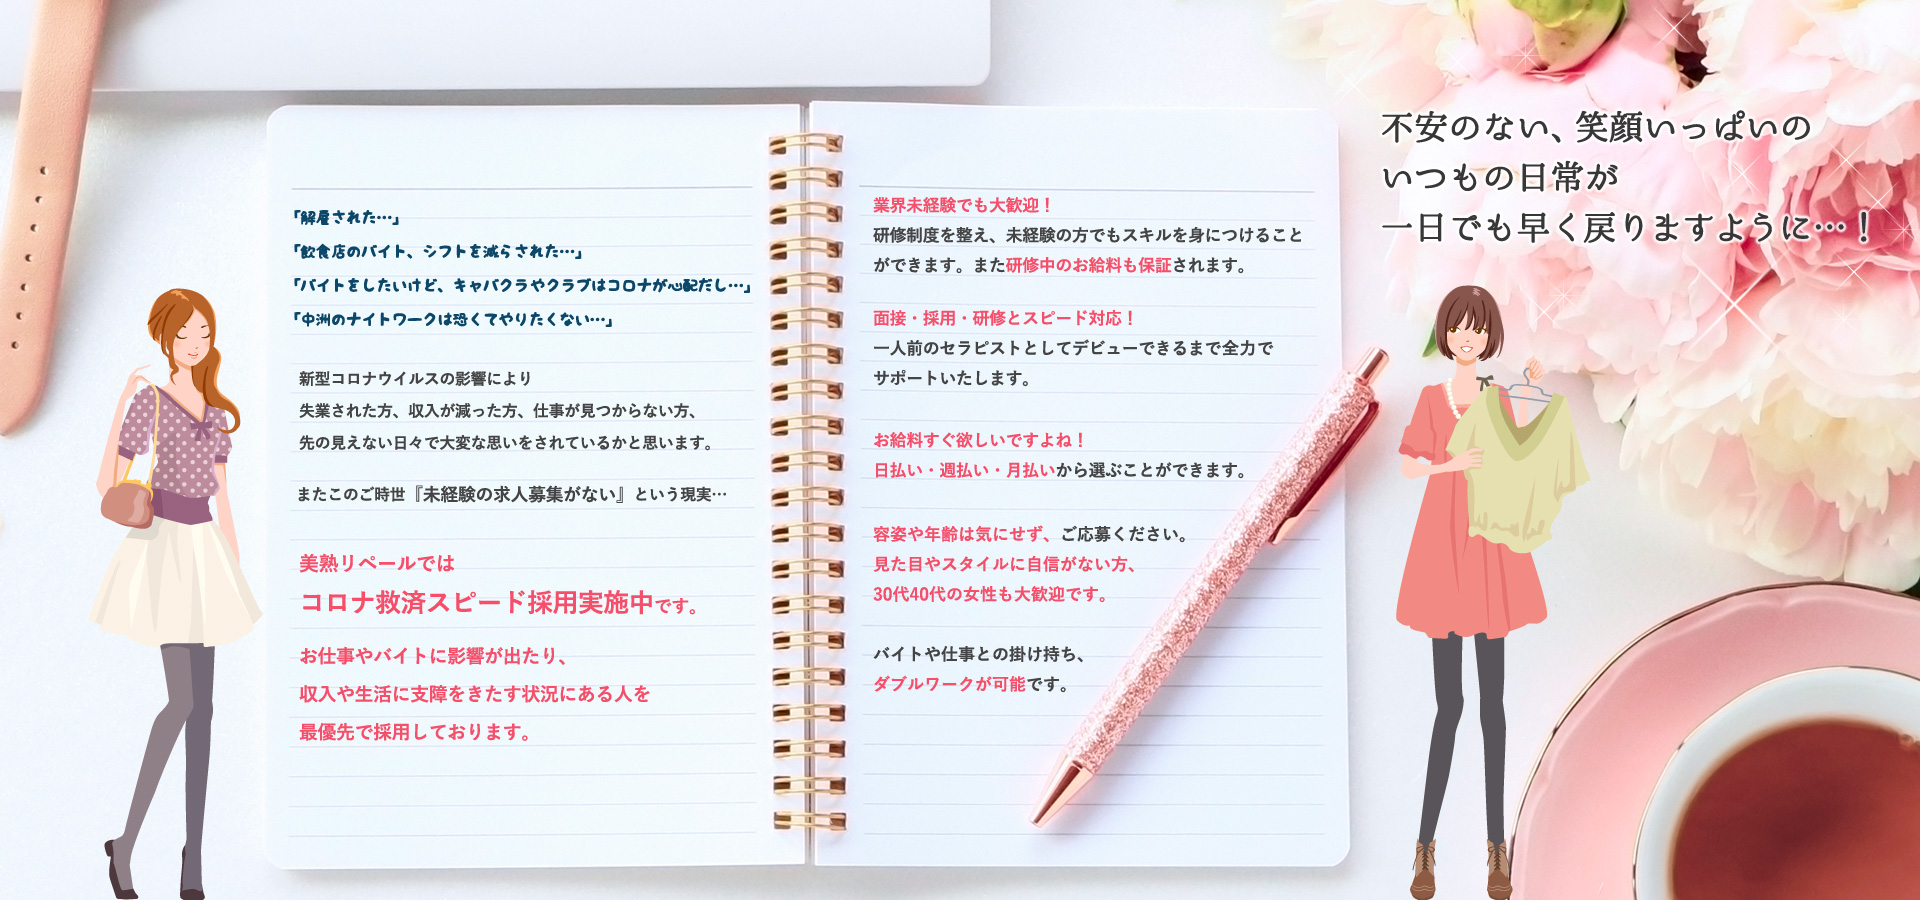 「解雇された…」
「飲食店のバイト、シフトを減らされた…」
「バイトをしたいけど、キャバクラやクラブはコロナが心配だし…」
「中洲のナイトワークは恐くてやりたくない…」
新型コロナウイルスの影響により
失業された方、収入が減った方、仕事が見つからない方、
先の見えない日々で大変な思いをされているかと思います。
またこのご時世『未経験の求人募集がない』という現実…
美熟リペールでは
コロナ救済スピード採用実施中です。
お仕事やバイトに影響が出たり、
収入や生活に支障をきたす状況にある人を
最優先で採用しております。
業界未経験でも大歓迎！
研修制度を整え、未経験の方でもスキルを身につけること
ができます。また研修中のお給料も保証されます。
面接・採用・研修とスピード対応！
一人前のセラピストとしてデビューできるまで全力で
サポートいたします。
お給料すぐ欲しいですよね！
日払い・週払い・月払いから選ぶことができます。
容姿や年齢は気にせず、ご応募ください。
見た目やスタイルに自信がない方、
30代40代の女性も大歓迎です。
バイトや仕事との掛け持ち、
ダブルワークが可能です。
不安のない、笑顔いっぱいの
いつもの日常が
一日でも早く戻りますように…！